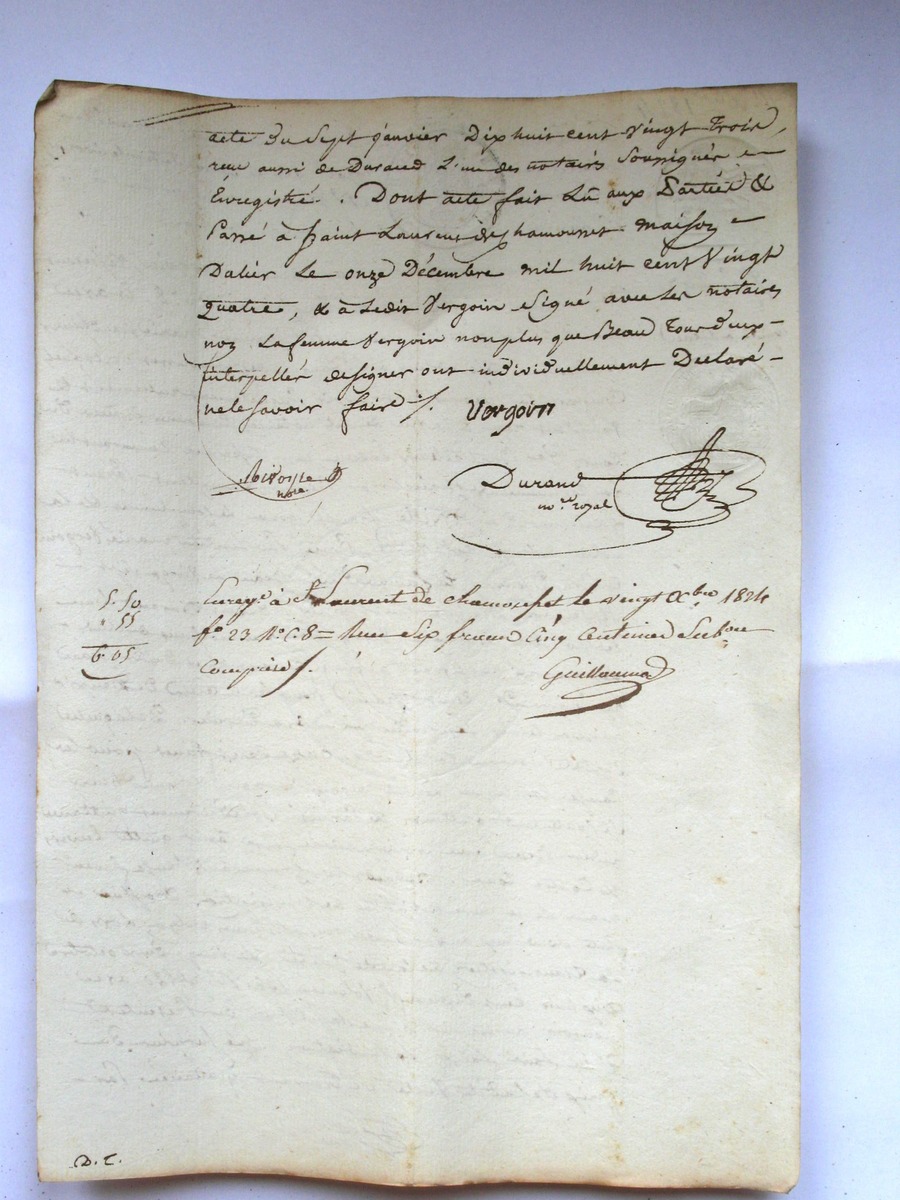 acte du Sept janvier Dix huit cent Vingt Trois,
recu aussi de Durand L'un des notaires Soussignés e
Enregistré. Dont acte fait Lu aux Parties &
Passé à Saint Laurent de Chamousset maison
Dalier Le onze Décembre mil huit cent Vingt
quatre, & à Ledit Vergoin Signé avec Les notaires
non La femme Vergoin non plus que Beau
interpellés de signer ont individuellement Declaré
ne le Savoir faire /.
Vergoin
nore
Durand
nore royal
5. 50
. 55
6. 05
Enregé à St Laurent de chamousset le vingt Xbre 1824
fo 23 No C. 8 = Recu Six francs Cinq Centimes Subon
Compris /.
Guillaumed
D. C.